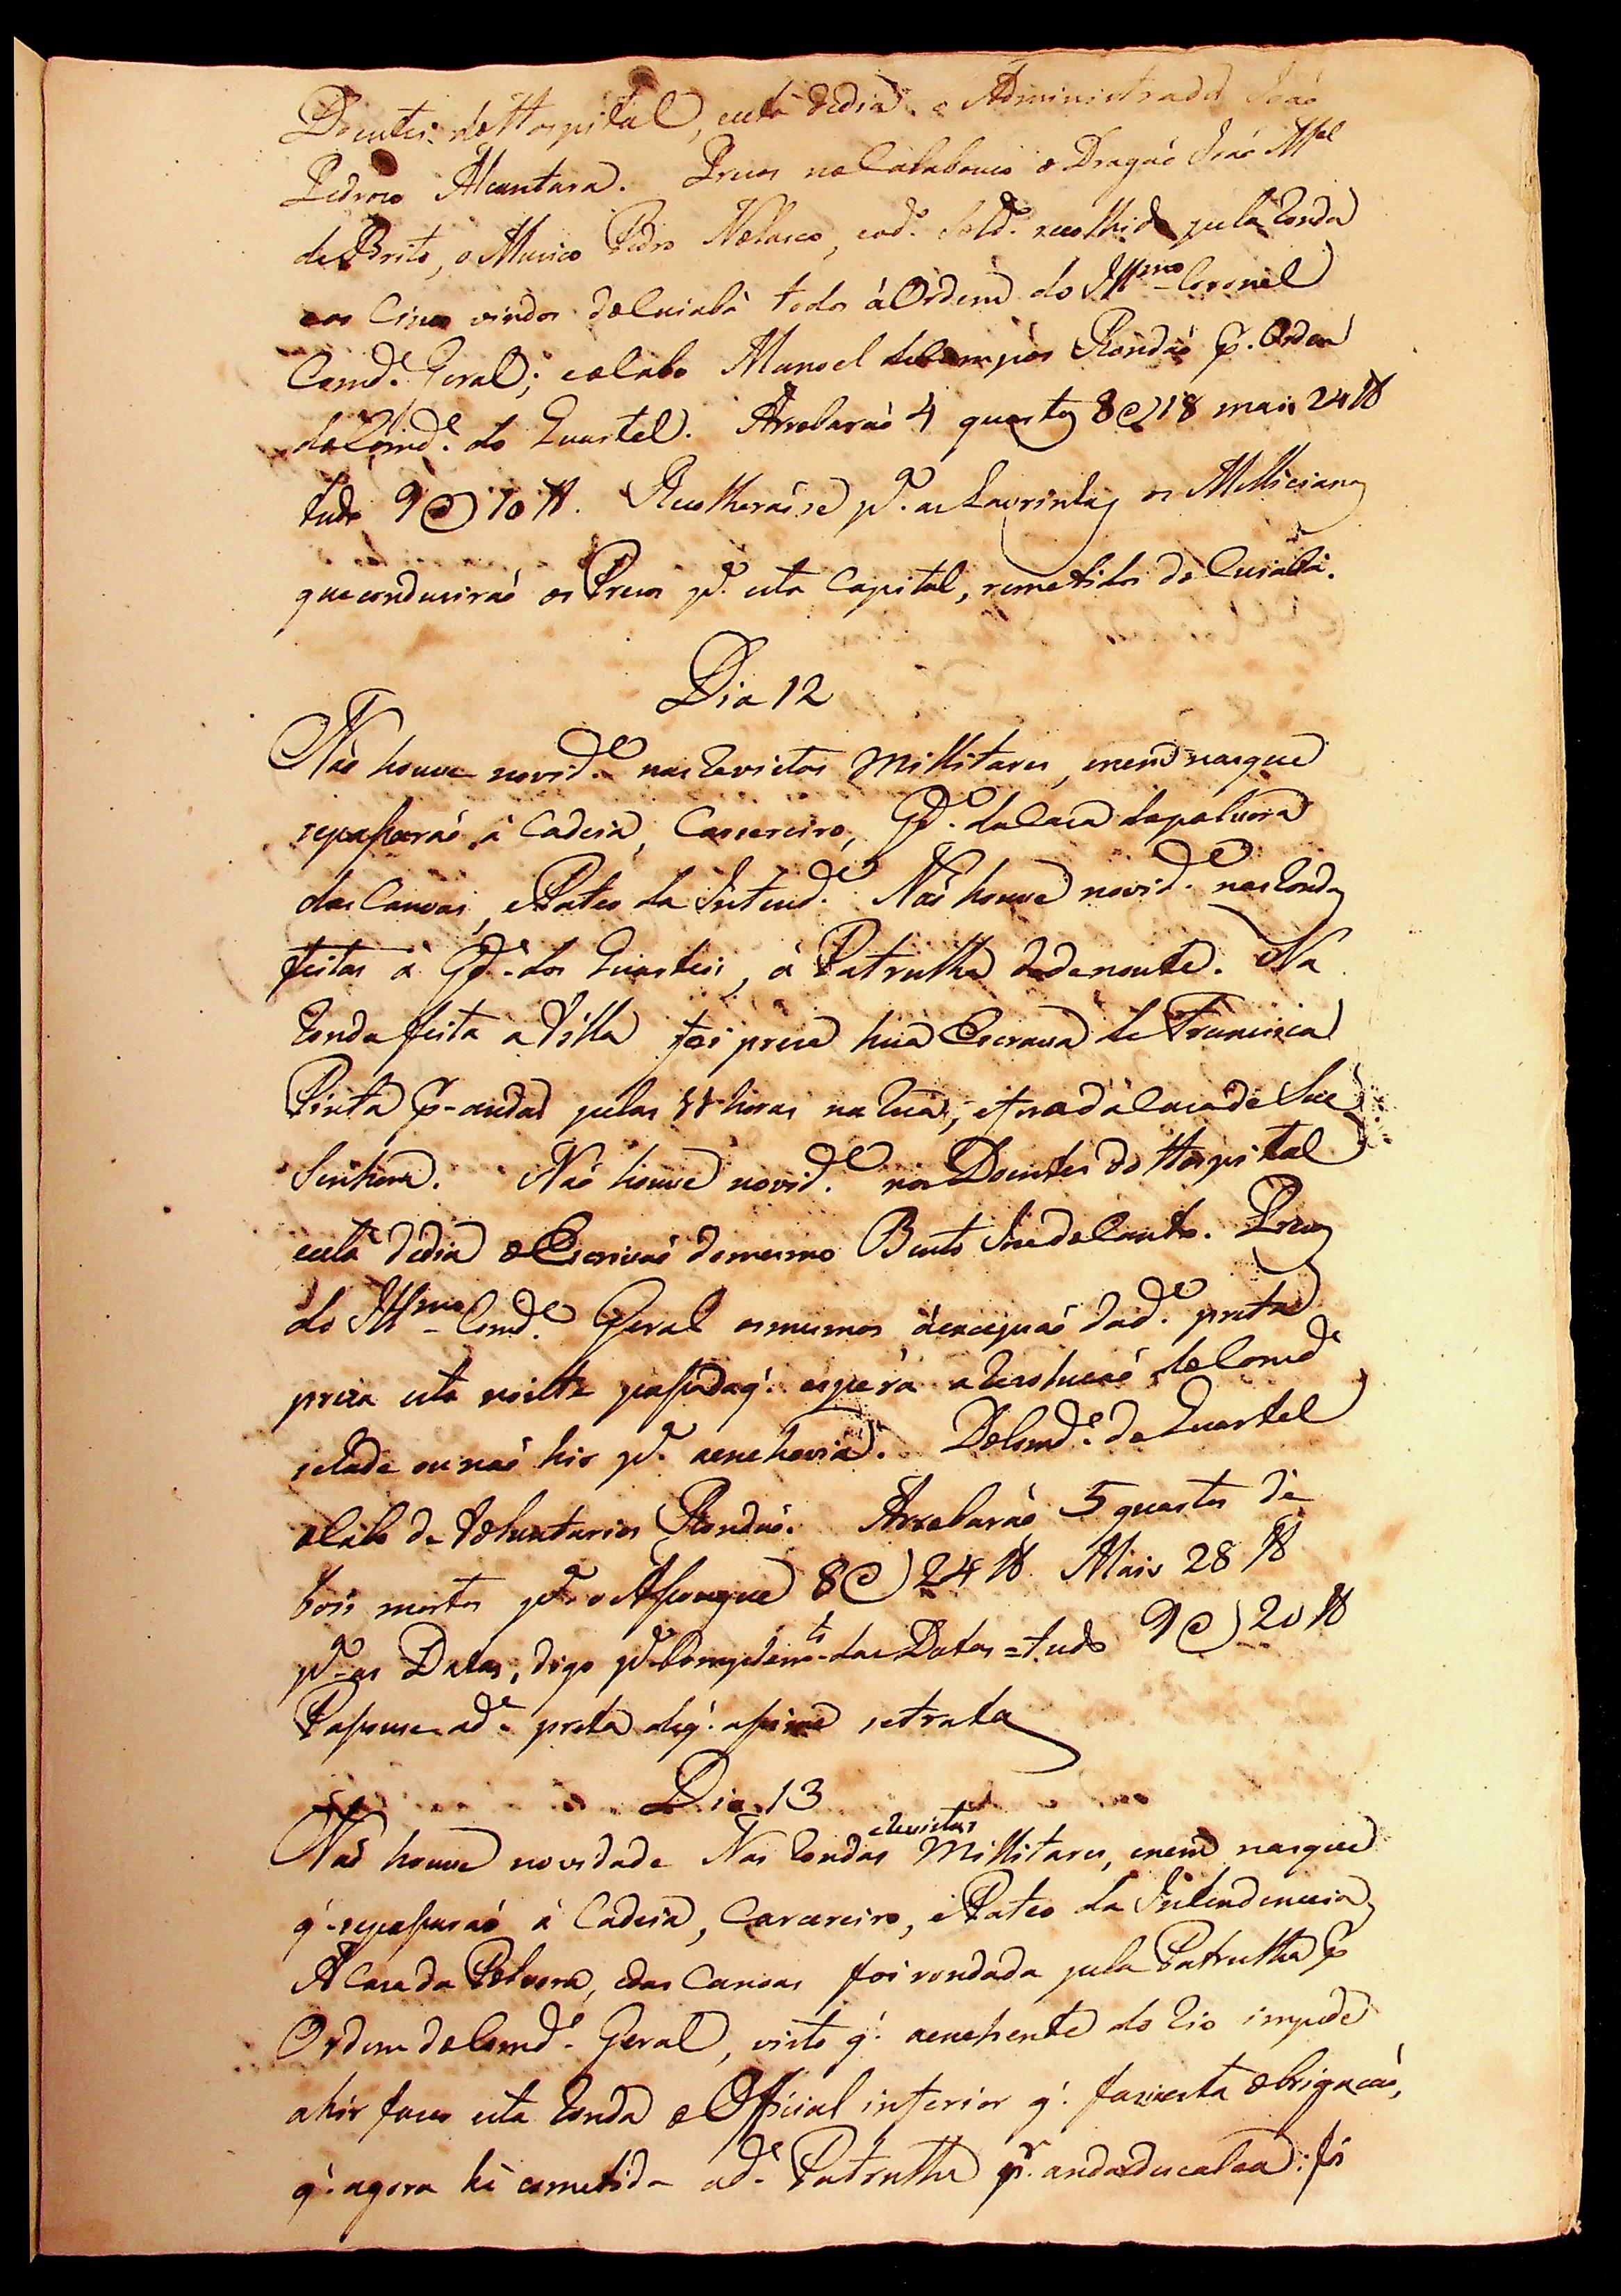 Doentes do Hospital, está dedia o Administrador João
Pedroso Alcantara. Prezos no Calabouço o Dragaõ João Mel
de Brito, o Musico Pedro Nolasco, eod.º Sold.º recolhido pela Ronda
eos Cinco vindos do Cuiabá todos á Ordem do Illmo Coronel
Comd.e Geral; eo Cabo Manoel de Campos Rondaõ p. Ordem
do Comd.e do Quartel. Arrobaraõ 4 quartos 8@18 mais 24 lb
tudo 9@10 lb. Recolheraõse p.a as Lavrinhas os Milliciano
que condusiraõ os Prezos p.a esta Capital, remetidos do Cuiabá.
Dia 12
Naõ houve novid.e nas Revistas Millitares, enem nasque
sepassaraõ á Cadeia, Carsereiro, Gd.a da Casa dapolvora
das Canoas, e Pateo da Intend.a Naõ houve novid.e nas Rondas
feitas á Gd.a dos Quarteis, á Patrulha dedenoute. Na
Ronda feita a Villa foi preza huã Escrava de Francisca
Pinta p. andar pelas 11 horas na Rua, e fora da Casa de Sue
Senhora. Naõ houve novid.e nos Doentes do Hospital
está dedia o Escrivaõ domesmo Bento Joze do Couto. Prezos
do Illmo Comd.e Geral osmesmos áexcepçaõ dad.a preta
preza esta noite passada q. espera a Resoluçaõ do Comd.e
sehade ounaõ hir p.a aenchovia. Do Comd.e do Quartel
o Cabo de Voluntarios Rondaõ. Arrobaraõ 5 quartos de
bois mortos p.a o Assougue 8@24 lb. Mais 28 lb
p.a as Datas, digo p.a Complem.to das Datas = tudo 9@20 lb
Passouse ad.a preta deq. assima setrata
Dia 13
Naõ houve novidade Nas Rondas eRevistas Millitares, enem nasque
q. sepassaraõ á Cadeia, Carcereiro, e Pateo da Intendencia
A Casa da Polvora, e das Canoas foi rondada pela Patrulha p
Ordem do Comd.e Geral, visto q. aenchente do Rio impede
ahir fazer esta Ronda o Official inferior q. fazia esta obrigaçaõ,
q. agora hé cometida ad.a Patrulha p.r andar descalça: foi